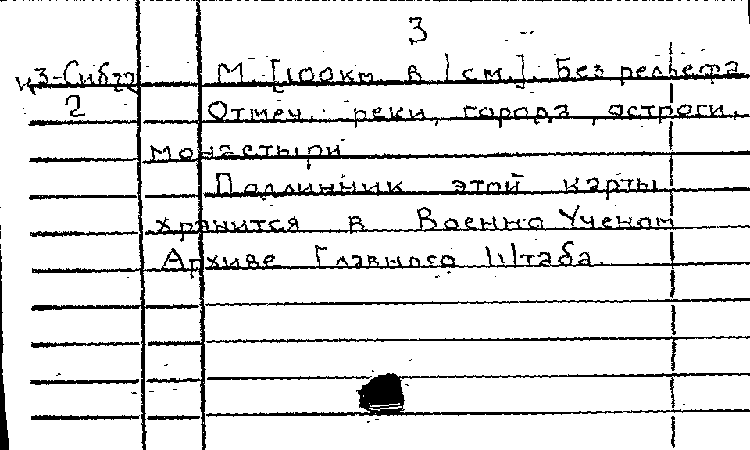 3
М. [100км. в 1 см.]. Без рельефа
2 Отмеч.: реки, города, остроги,
монастыри
Подлинник этой карты
хранится в Военно Ученом
Архиве Главного Штаба.